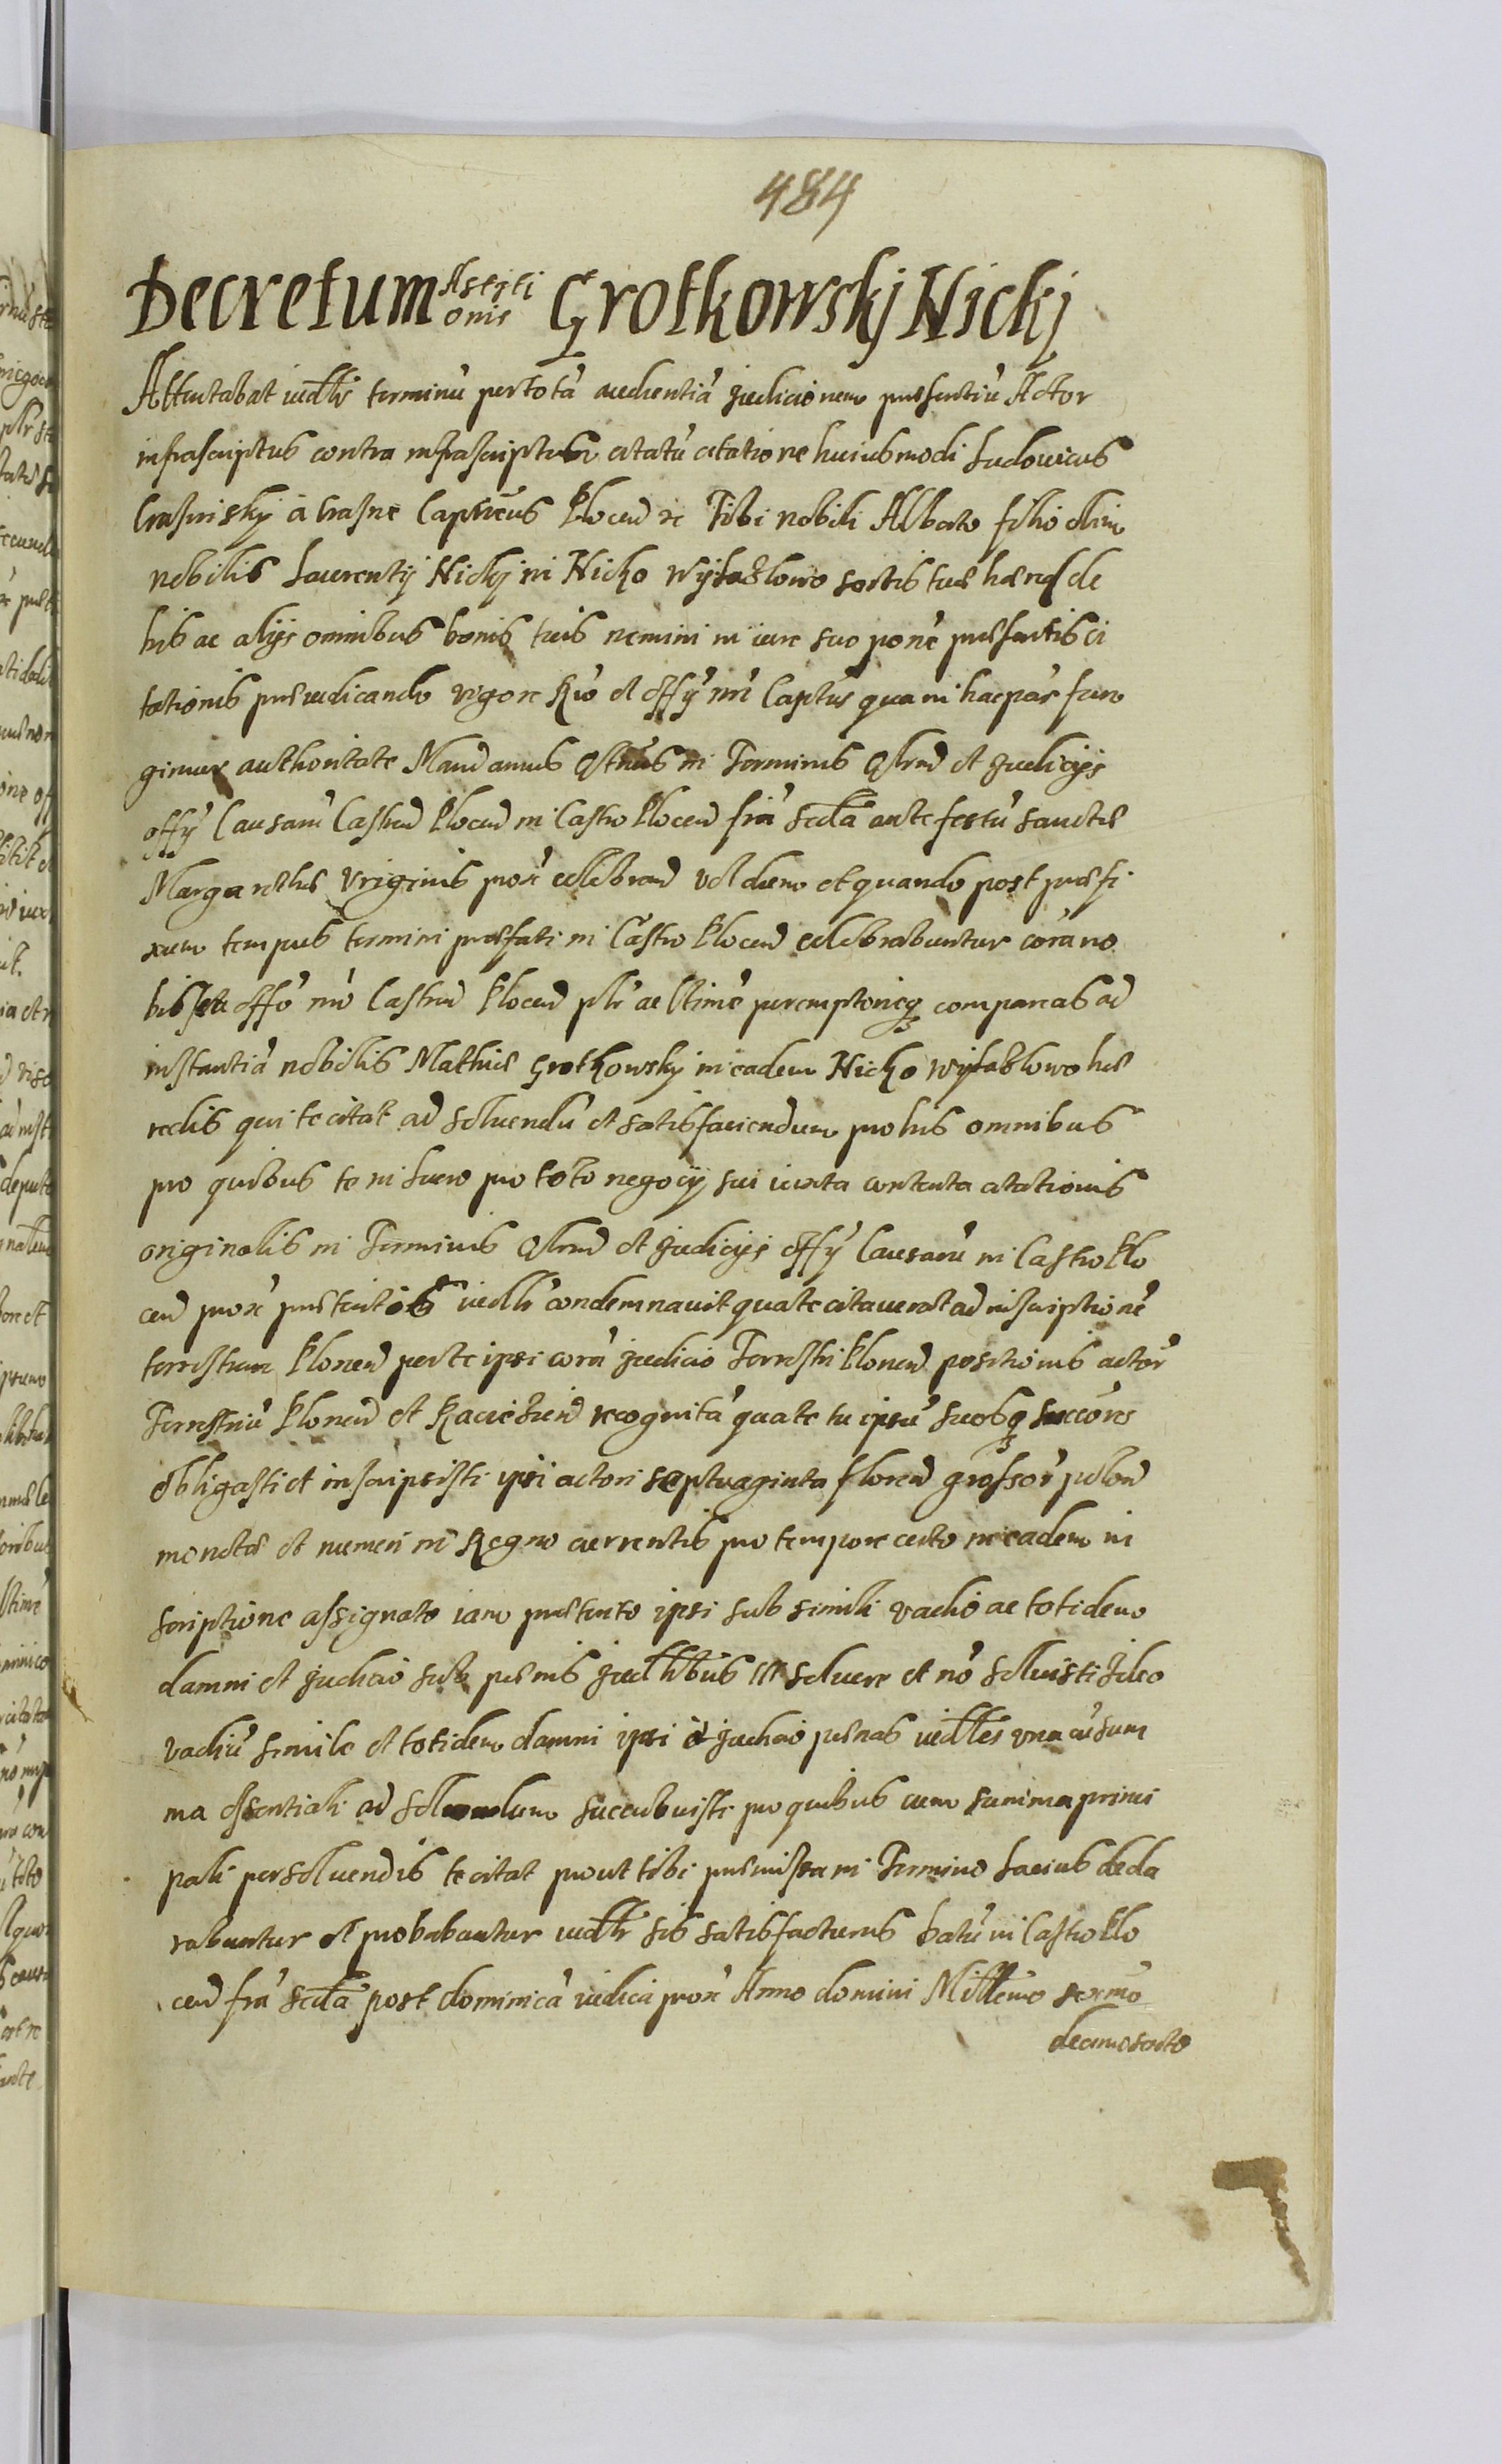 484
Decretum Astiti
onis Grotkowskj Nickj
Attentabat iudlr terminũ per totã audientiã Judicio nem̃ præsentiũ Actor
infrascriptus contra infrascriptum citatũ citatione huiusmodi Ludouicus
Crasinisky à Crasne Capneus Plocen̄ rc Tibi nobili Alberto filio olim
nobilis Laurentij Nickj in Nicko Wÿ sortis tuæ hæred de
his ac alijs omnibus bonis tuis nemini in iure suo ponẽ præsentis ci
tationis præiudicando vigore Rio et offÿ nri Captus qua in hac par fun
gimur authoritate Mandamus Qtnus in Terminis Qlrn̄ et Judicijs
offÿ Causarũ Castren̄ Plocen̄ in Castro Plocen̄ fria scda ante festũ sanctæ
Margarethæ Virginis prox celebran̄ vel dum et quando post præfi
xum tempus termini præfati in Castro Plocen̄ celebrabuntur corã no
bis seu offo nro Castren̄ Plocen̄ plr ac ltimè peremptorieq compareas ad
instantiã nobilis Mathiæ Grotkowskj in eadem Nicko hæ
redis qui te citat ad soluendũ et satisfaciendum pro his omnibus
pro quibus te in lucro pro toto negocij sui iuxta contenta citationis
originalis in Terminis Qlrn̄ et Judicijs offÿ Causarũ in Castro Plo
cen̄ prox præteritis iudlr condemnauit qua te citauerat ad inscriptionẽ
terrestrem Plonen̄ per te ipsi corã Judicio Terrestri Plonen̄ positionis actor
Terrestriũ Plonen̄ et Raciezien̄ recognitã qua te tu ipsũ suosq succores
obligasti et inscripsisti ipsi actori septuaginta floren̄ grossor polon̄
monetæ et numeri in Regno currentis pro tempore certo in eadem in
scriptione assignato iam præterito ipsi sub simili vadio ac totidem
damni et Judicio sub pænis Judlibus soluere et nõ soluisti Ideo
vadiũ simile et totidem damni ipsi et Judicio pænas iudles vna cũ sum
ma essentiali ad soluendum succubuisti pro quibus cum summa princi
pali persoluendis te citat prout tibi præmissa in Termino lacius decla
rabuntur et probabuntur iudlr sis satisfacturus Datũ in Castro Plo
cen̄ fria scda post dominicã iudica prox Anno domini Millemo sexmo
decimo